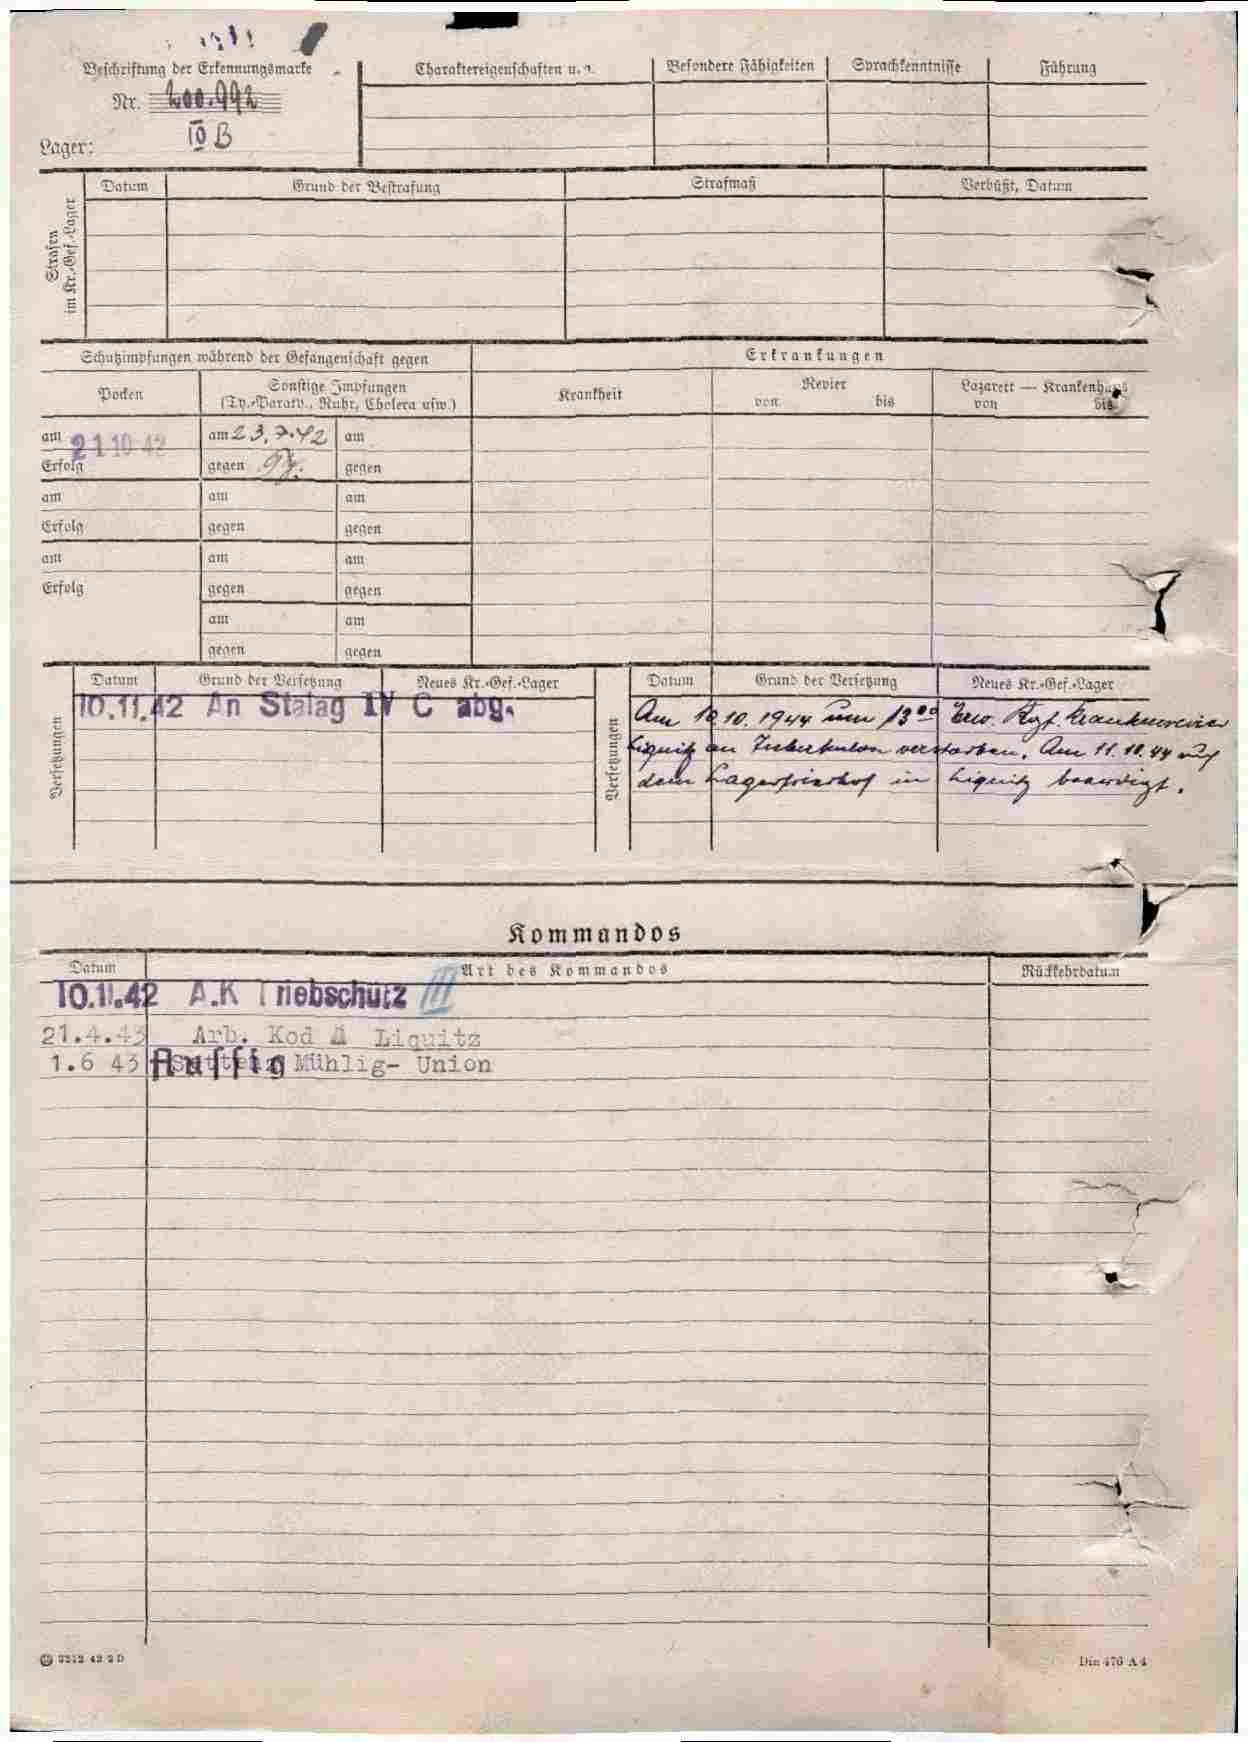 Beschriftung der Erkennungsmarke
Nr. 200.992
Lager: IV B
Charaktereigenschaften u. a. Besondere Fähigkeiten Sprachkenntnisse Führung
Strafen im Kr.-Gef.-Lager
Datum Grund der Bestrafung Strafmaß Verbüßt, Datum
Schutzimpfungen während der Gefangenschaft gegen
Erkrankungen
Pocken
Sonstige Impfungen
(Ty.-Paraty., Ruhr, Cholera usw.)
Krankheit
Revier
von bis
Lazarett — Krankenhaus
von bis
am 21.10 42 am 23.7.42 am
Erfolg gegen Ty. gegen
am am am
Erfolg gegen gegen
am am am
Erfolg gegen gegen
am am
gegen gegen
Versetzungen
Datum Grund der Versetzung Neues Kr.-Gef.-Lager
10.11.42 An Stalag IV C abg.
Versetzungen
Datum Grund der Versetzung Neues Kr.-Gef.-Lager
Am 10.10.1944 um 13⁰⁰ Erw. Kgf. Krankenrevier
Liquitz an Tuberkulose verstorben. Am 11.10.44 auf
dem Lagerfriedhof in Liquitz beerdigt.
Kommandos
Datum Art des Kommandos Rückkehrdatum
10.11.42 A.K Triebschütz III
21.4.43 Arb. Kod Liquitz
1.6 43 Aussig Mühlig- Union
3212 42 2 D
Din 476 A 4